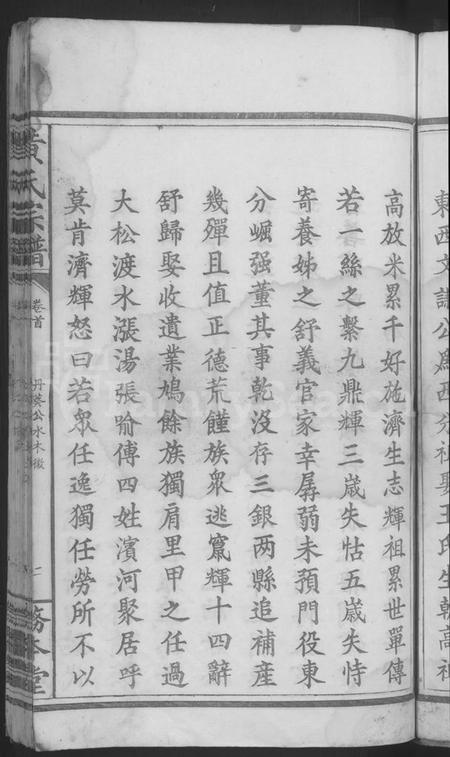 東西文誥公為西分祖娶王氏生朝高祖
高放米累千好施濟生志輝祖累世單傳
若一絲之繫九鼎輝三歲失怙五歲失恃
寄養姊之舒義官家幸孱弱未預門役東
分崛强董其事乾沒存三銀两縣追補產
幾殫且值正德荒饉族眾逃竄輝十四辭
舒歸娶收遺業鳩餘族獨肩里甲之任過
大松渡水漲湯張喻傅四姓濱河聚居呼
莫肯濟輝怒曰若眾任逸獨任勞所不以
黃氏宗譜
卷首
公水木
二
務本堂
FamilySearch